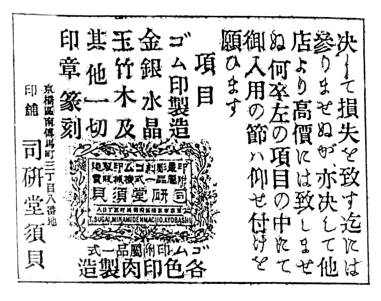 决して損失を致す迄には
參りませぬが亦决して他
店より高價には致しませ
ぬ何卒左の項目の中にて
御入用の節ハ仰せ付けを
願ひます
項目
ゴム印製造
金銀水晶
玉竹木及
其他一切
印章篆刻
京橋區南傳馬町三丁目八番地
印舖 司硏堂須貝
司硏堂須貝
T.SUGAI, MINAMIDENMACHO, KYOBASHI
ゴム印附屬品一式
各色印肉製造